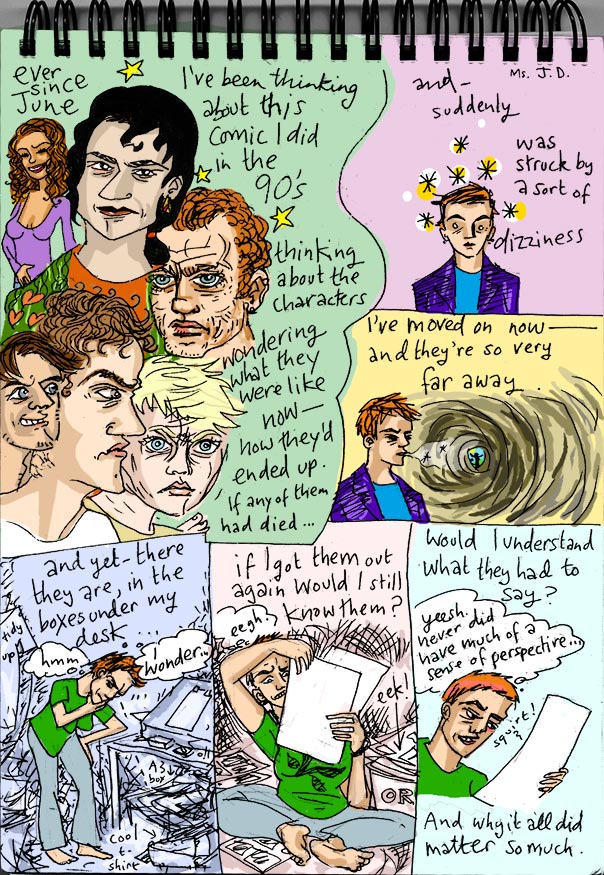 ever
since
June
I've been thinking
about this
Comic I did
in the
90's
thinking
about the
characters
wondering
what they
were like
now—
how they'd
ended up.
If any of them
had died...
Ms. J.D.
and-
suddenly
was
struck by
a sort of
dizziness
I've moved on now—
and they're so very
far away.
and yet- there
they are, in the
boxes under my
desk...
tidy
up
hmm.
wonder...
A3
box
cool
t-
shirt
if I got them out
again would I still
know them?
eegh.
eek!
OR
Would I understand
what they had to
say?
yeesh.
never did
have much of a
sense of perspective...
And why it all did
matter so much.